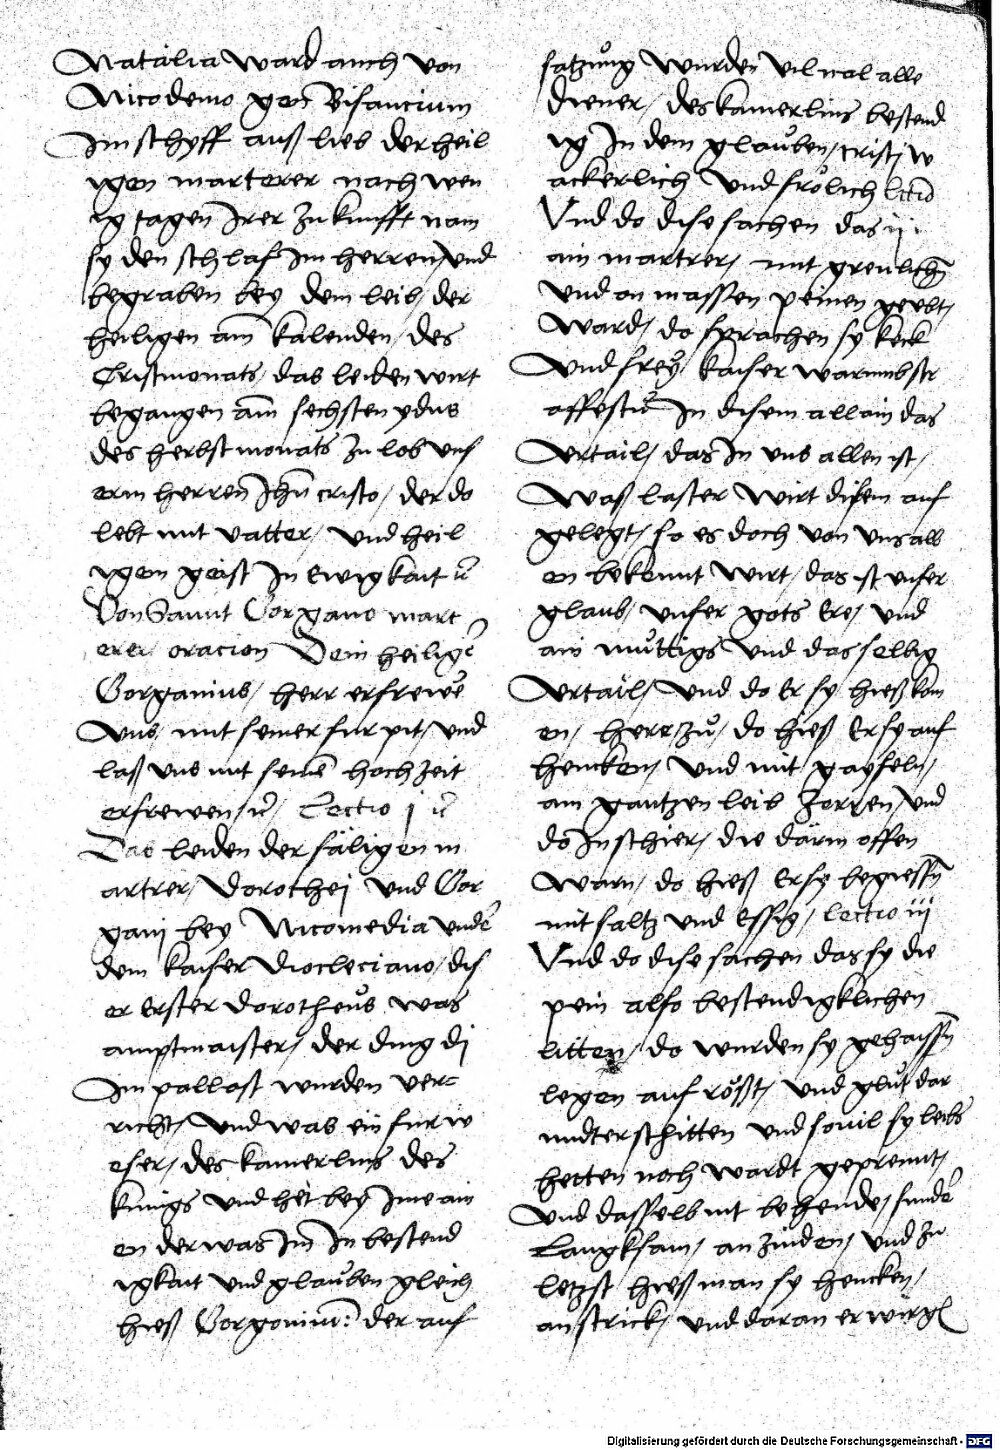 Natalia ward auch von
Nicodemo gen Bisancium
Im schyff auß lieb der heil
igen marterer nach wen
ig tagen Irer zukunfft nam
sy den schlaf Im herren, vnd
begraben bey dem leib, der
heiligen am kalenden, des
Cristmonats, das leiden wirt
begangen am sechsten ydus
des herbstmonats zu lob vns
erm herren Jhū cristo, der do
lebt mit vatter, vnd heil
igem geist In Ewigkait
Von Sannt Gorgano mart
erer oracion Dein heilige
Gorganius, herr erfrewe
vns, mit seiner furpit, vnd
laß vns mit seine hochzeit
erfrewen, Lectio j
Das leiden der säligen m
artrer, Dorothej vnd Gor
ganj bey Nicomedia vnde
dem kaiser Diocleciano, dis
er Erster Dorotheůs was
amptmaister, der ding dj
Im pallast wurden ver=
richt, vnd was ein furw
eser, des kamerlins des
kunigs vnd het bey Ime ain
en der was Im In bestend
igkait vnd glaůben gleich
hieß Gorgonium: der auf
satzůng wurden vil nal alle
diener, des kamerlins bestend
ig In dem glaůben, cristi w
ackerlich vnd frölich lctio
Vnd do dise sachen das ij
ain martrer, mit greulichn
vnd on massen peinen geebt,
ward, do sprachen sy keck
vnd frey, kaiser warumbstr
affestu In disem allain das
vrtail, das In vns allen ist,
Waß laster wirt disem auf
gelegt, so es doch von vns all
en bekennt wirt, das ist vnser
glaub, vnser gots Ere, vnd
ain můttigs vnd das selbig
vrtail, vnd do Er sy hieß kom
en, herr,zů, do hieß Er sy auf
hencken, vnd mit gayseln,
am gantzen leib Zerren, vnd
do In schier, die därm offen
warn, do hieß Er sy begiessn
mit saltz vnd Essig, lectio iij
Vnd do dise sachen das sy die
pein also bestendigklichen
litten, do wurden sy gehaissn
legen auf rößt, vnd glůt dar
undter schitten vnd souil sy leibs
hetten noch wardt geprennt,
vnd dasselb nit behende, sunde
Langksam, an zinden, vnd zu
letzst hieß man sy hencken,
an strick, vnd daran erwürgl
Digitalisierung gefördert durch die Deutsche Forschungsgemeinschaft - DFG